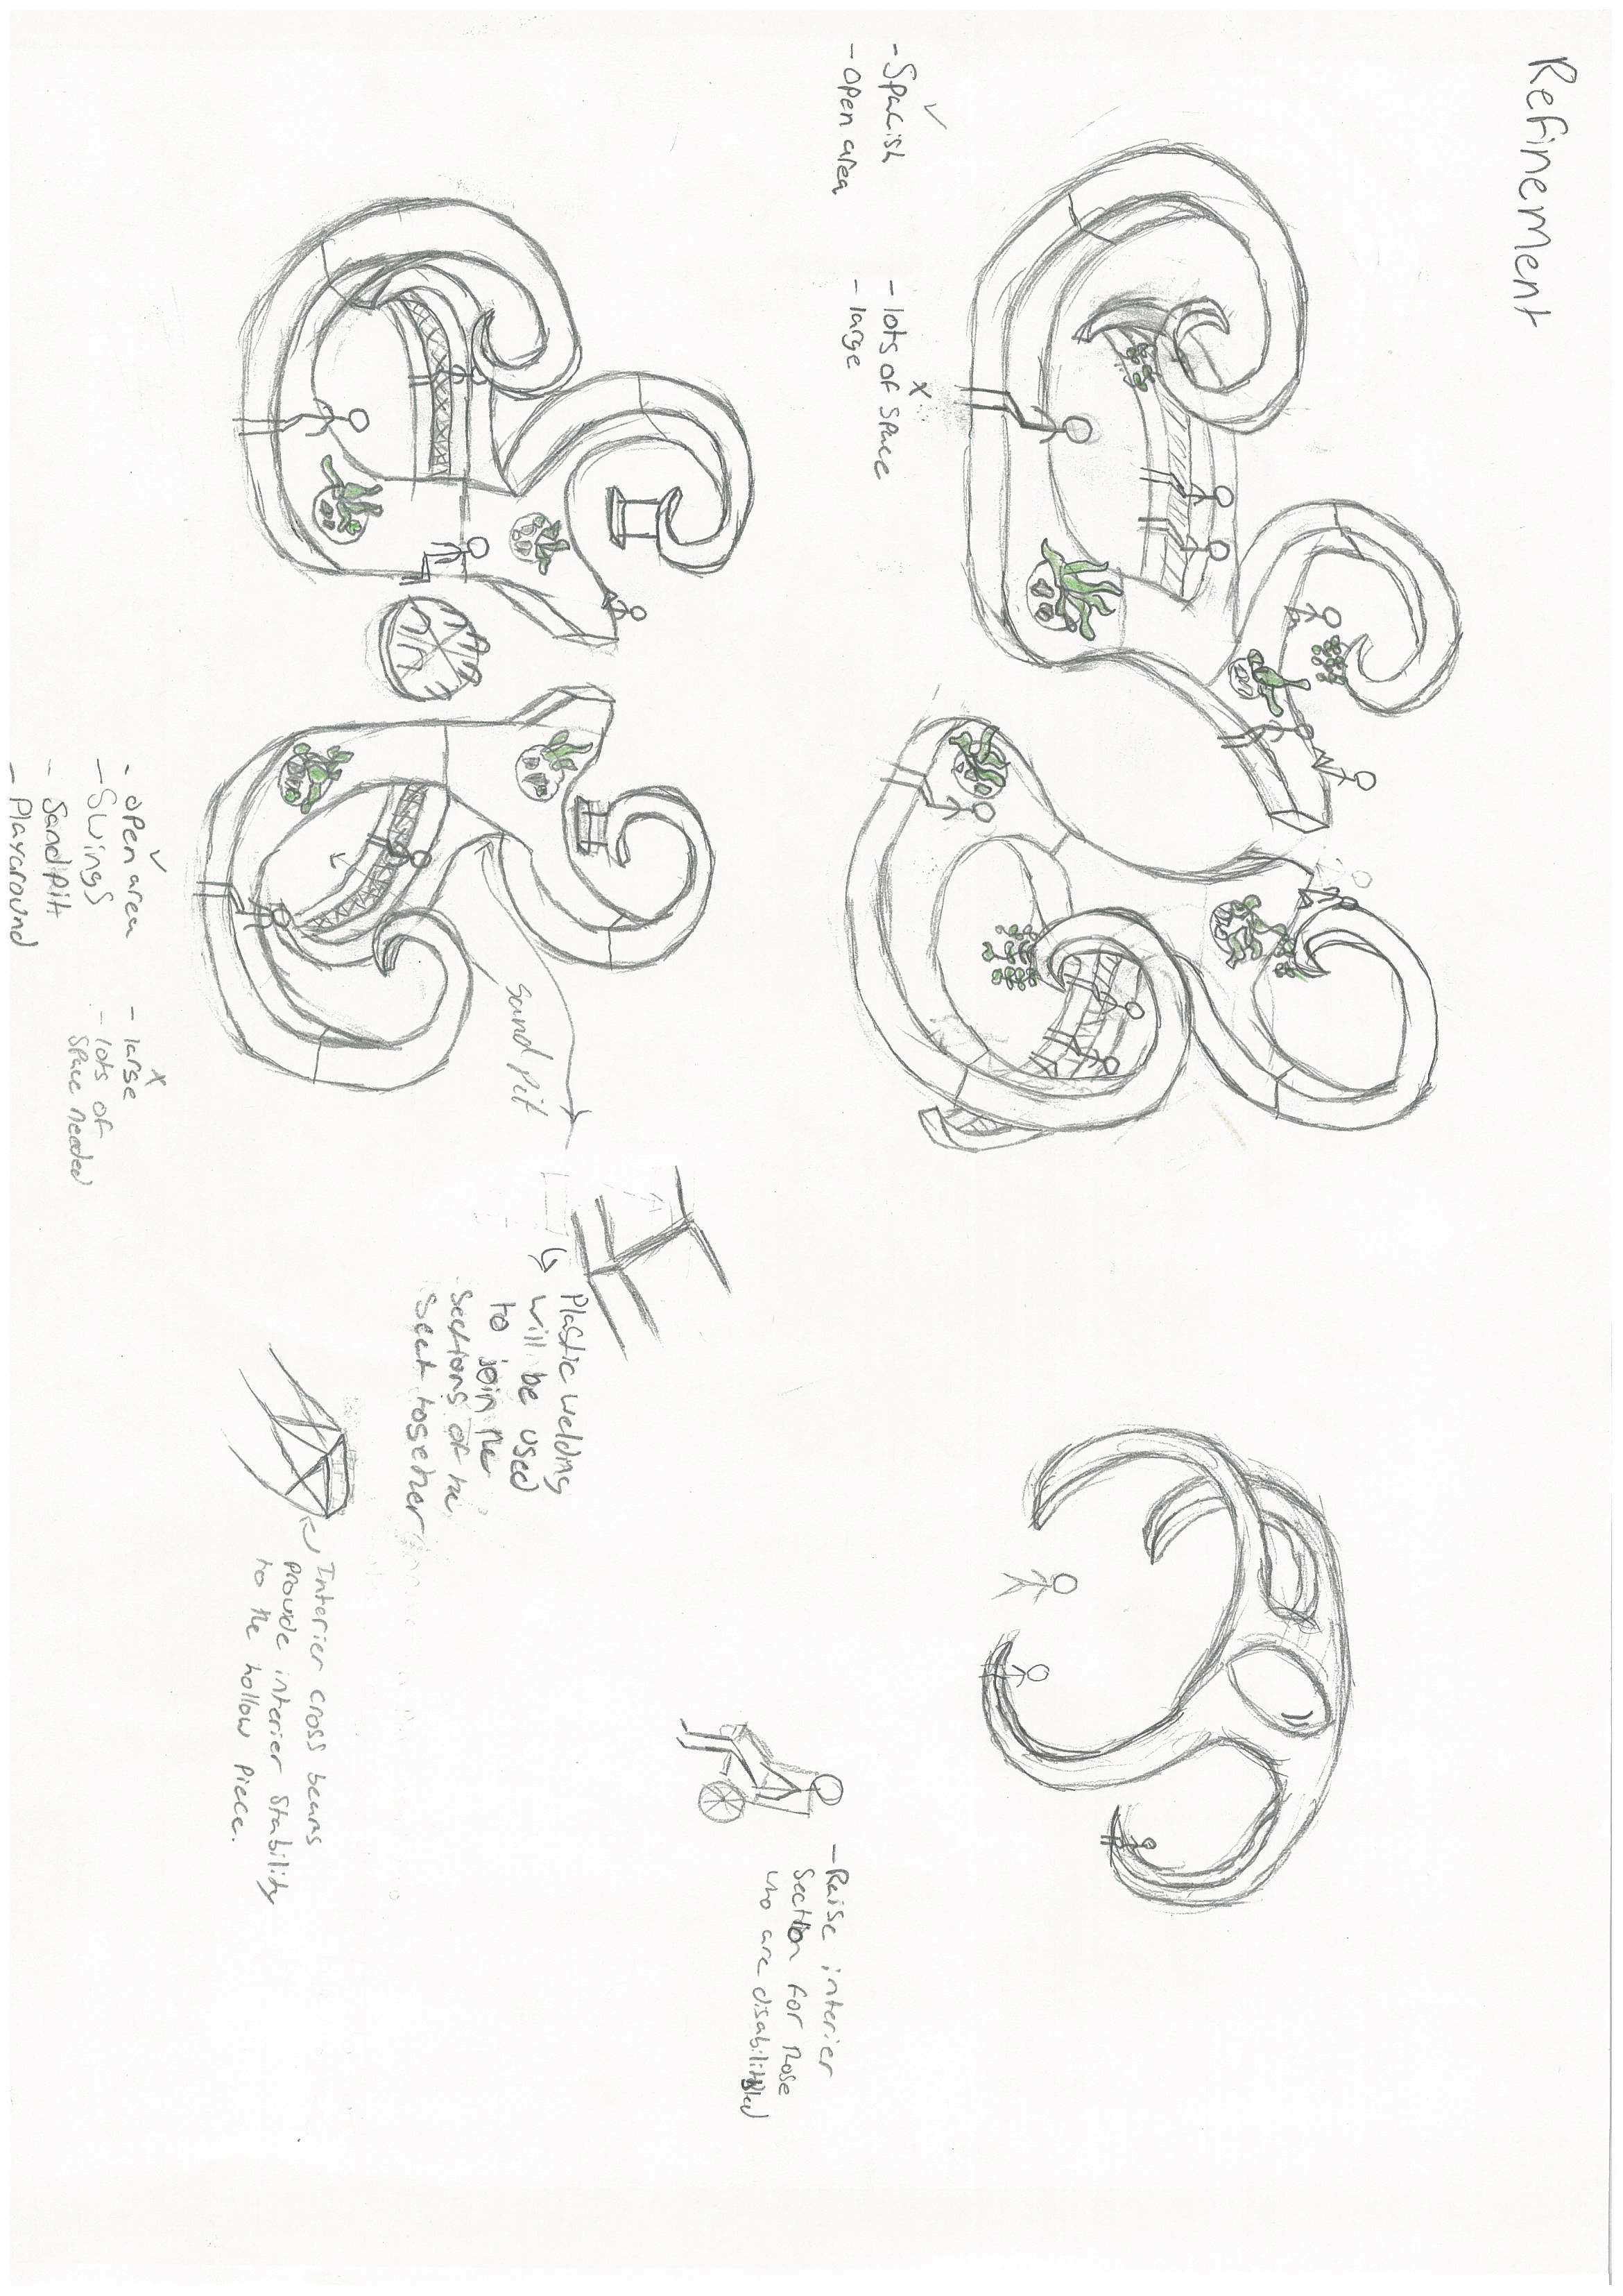 Refinement
✓
- Spacish
- open area
x
- lots of space
- large
- Raise interier
Section for those
who are disabilitbled
sand pit
Plastic welding
will be used
to join the
sections of the
seat together
Interier cross beams
provide interier stability
to the hollow piece.
✓
- open area
- Swings
- Sandpit
- Playground
x
- large
- lots of
space needed